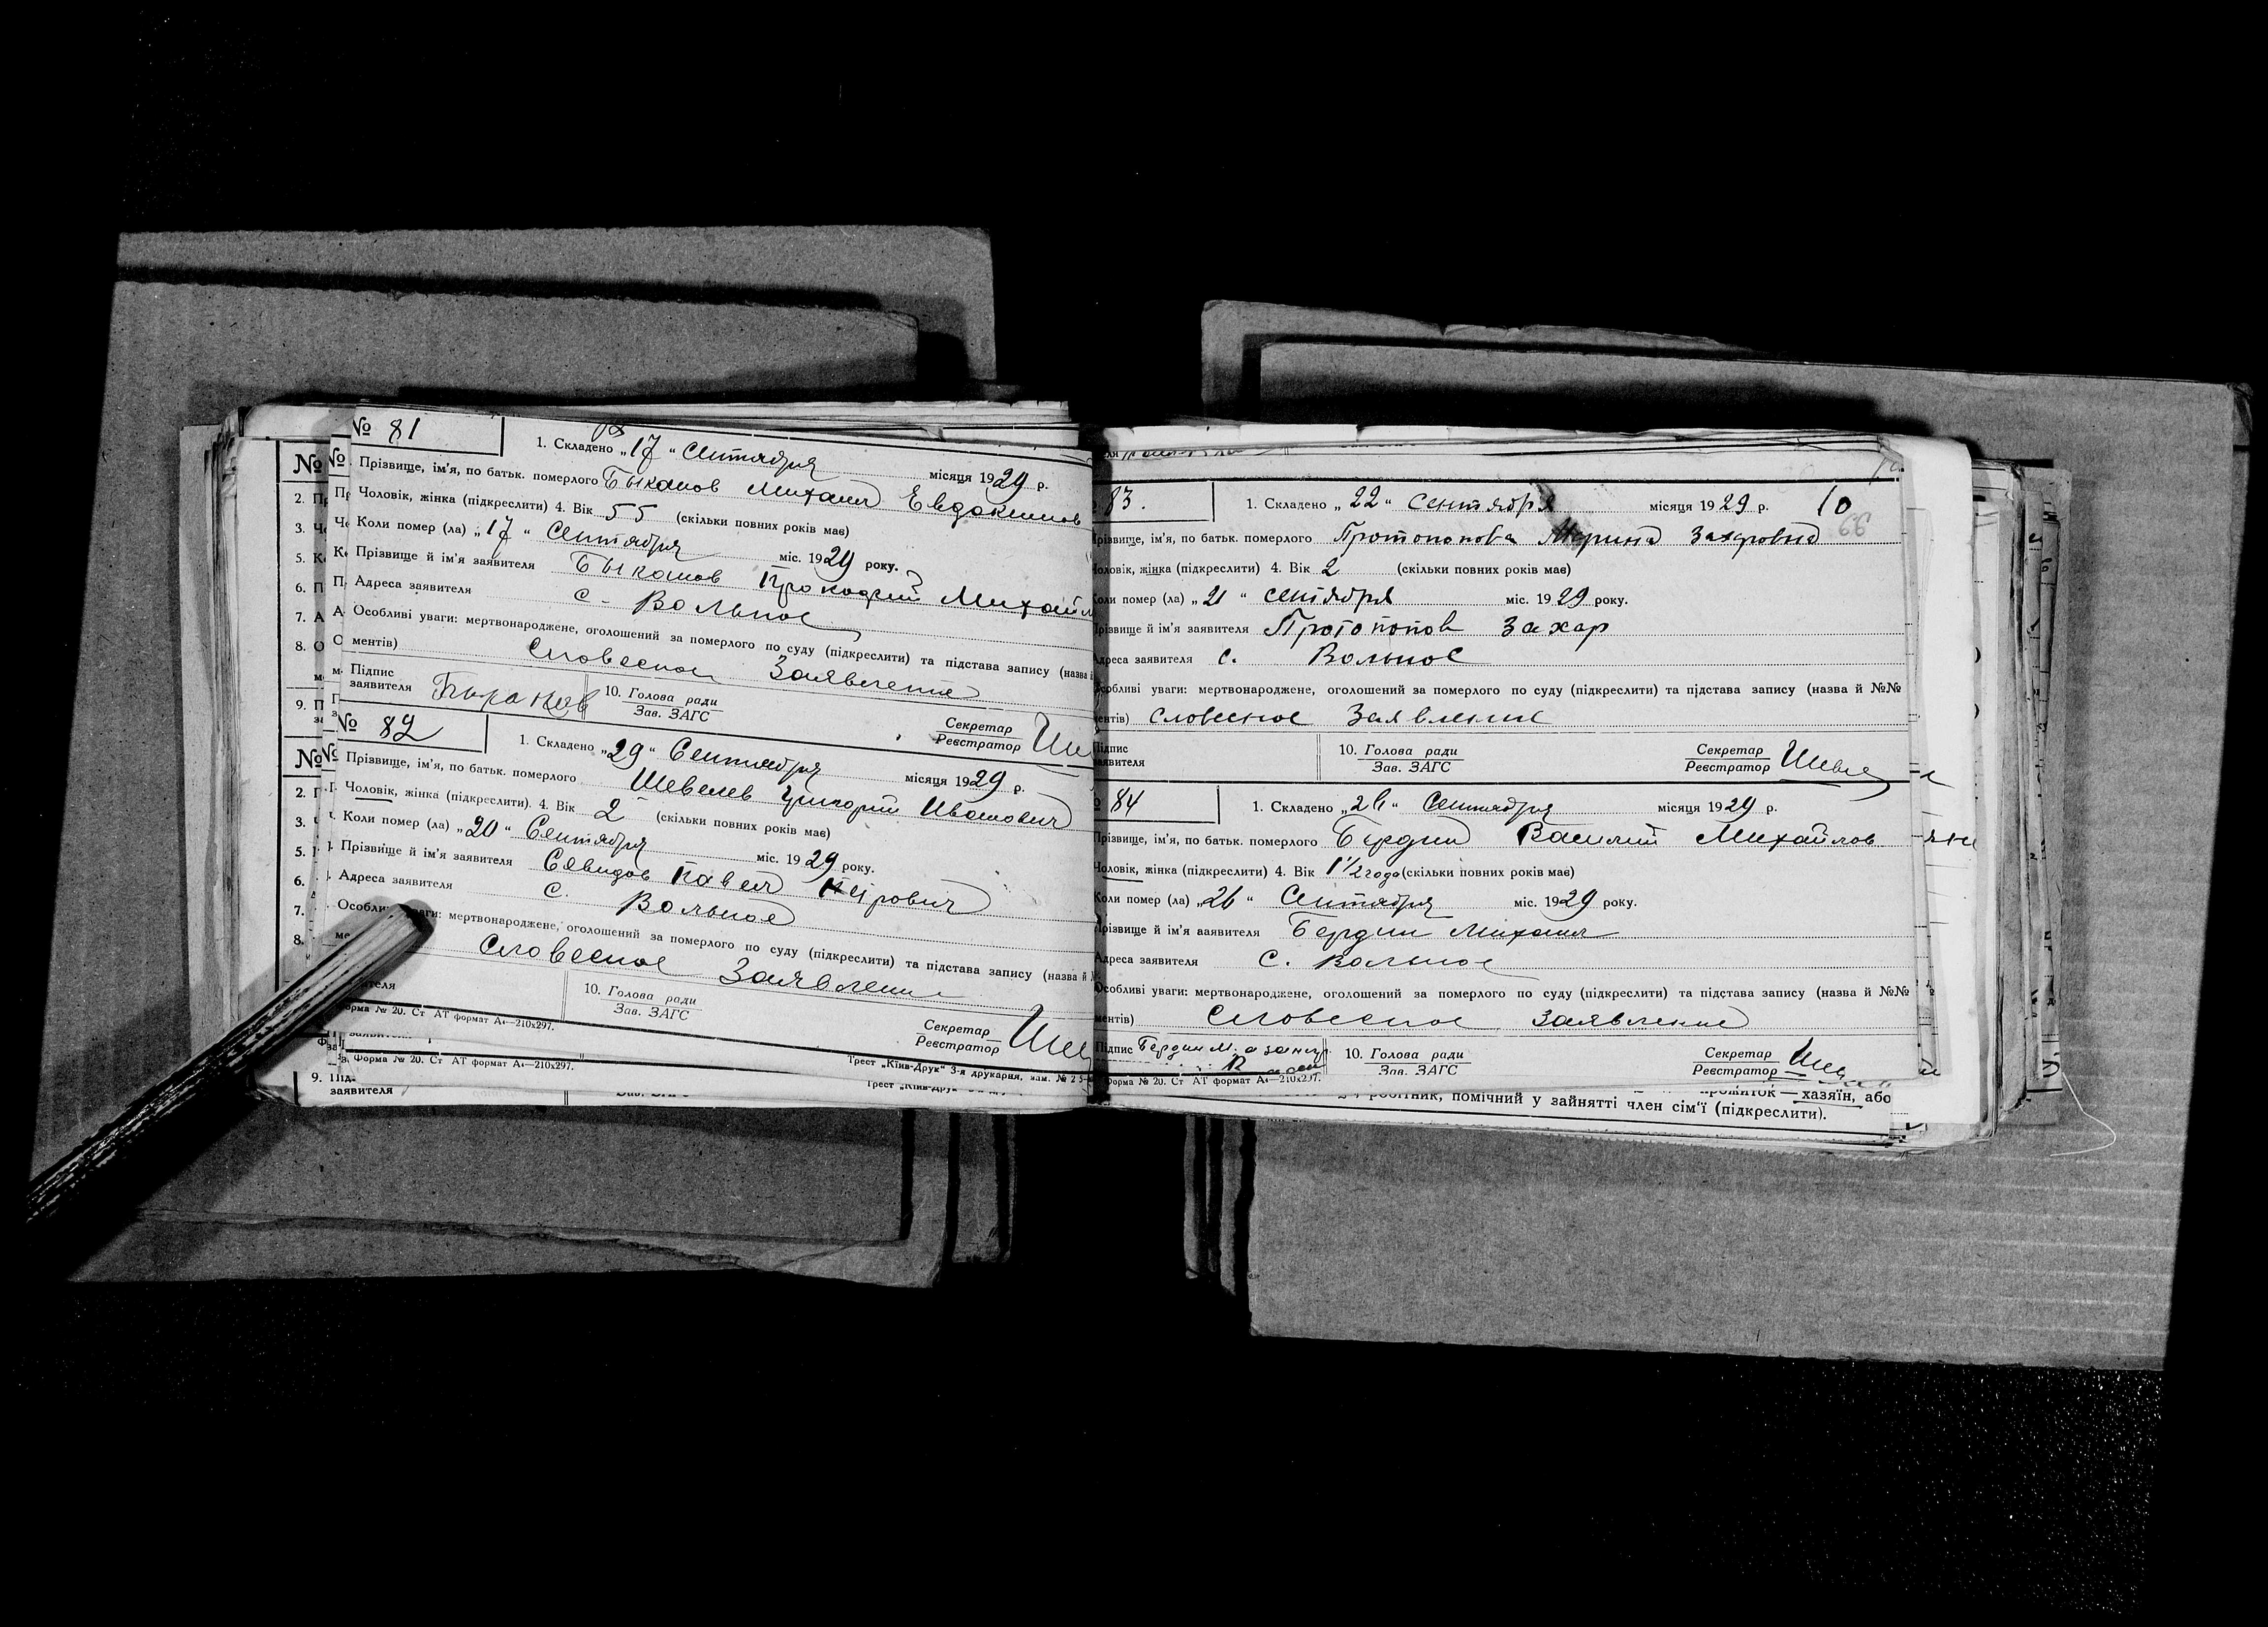 № 81
1. Складено „17“ Сентября місяця 1929 р.
Прізвище, ім'я, по батьк. померлого Быканов Михаил Евдокимов
Чоловік, жінка (підкреслити) 4. Вік 55 (скільки повних років має)
Коли помер (ла) „17“ Сентября міс. 1929 року.
Прізвище й ім'я заявителя Быканов Михайл
Адреса заявителя с. Вольное
Особливі уваги: мертвонароджене, оголошений за померлого по суду (підкреслити) та підстава запису (назва
ментів) Словесное Заявление
Підпис
заявителя
10. Голова ради
Зав. ЗАГС
Секретар
Реєстратор
№ 82
1. Складено „29“ Сентября місяця 1929 р.
Прізвище, ім'я, по батьк. померлого Шевелев Григорий Иванович
Чоловік, жінка (підкреслити). 4. Вік 2 (скільки повних років має)
Коли помер (ла) „20“ Сентября міс. 1929 року.
Прізвище й ім'я заявителя Севидов Павел Петрович
Адреса заявителя с. Вольное
мертвонароджене, оголошений за померлого по суду (підкреслити) та підстава запису (назва й
Словесное Заявление
10. Голова ради
Зав. ЗАГС
Секретар
Реєстратор
№ 20. Ст АТ формат А₄—210х297.
Форма № 20. Ст АТ формат А₄—210х297.
Трест „Київ-Друк“ 3-я друкарня, зам. №
9. Під.
заявителя
83.
1. Складено „22“ Сентября місяця 1929 р. 10
66
Прізвище, ім'я, по батьк. померлого Протопопова Марина Захаровна
Чоловік, жінка (підкреслити) 4. Вік 2 (скільки повних років має)
Коли помер (ла) „21“ сентября міс. 1929 року.
Прізвище й ім'я заявителя Протопопов Захар
Адреса заявителя с. Вольное
Особливі уваги: мертвонароджене, оголошений за померлого по суду (підкреслити) та підстава запису (назва й №№
ментів) Словесное Заявление
Підпис
заявителя
10. Голова ради
Зав. ЗАГС
Секретар
Реєстратор
84
1. Складено „26“ Сентября місяця 1929 р.
Прізвище, ім'я, по батьк. померлого Бердин Василий Михайлов
Чоловік, жінка (підкреслити) 4. Вік 1 1/2 года (скільки повних років має)
Коли помер (ла) „26“ Сентября міс. 1929 року.
Прізвище й ім'я заявителя Бердин Михаил
Адреса заявителя с. Вольное
Особливі уваги: мертвонароджене, оголошений за померлого по суду (підкреслити) та підстава запису (назва й №№
ментів) Словесное Заявление
Підпис Бердин М.
10. Голова ради
Зав. ЗАГС
Секретар
Реєстратор
Форма № 20. Ст АТ формат А₄—210х297.
прожиток — хазяїн, або
робітник, помічний у зайнятті член сім'ї (підкреслити).